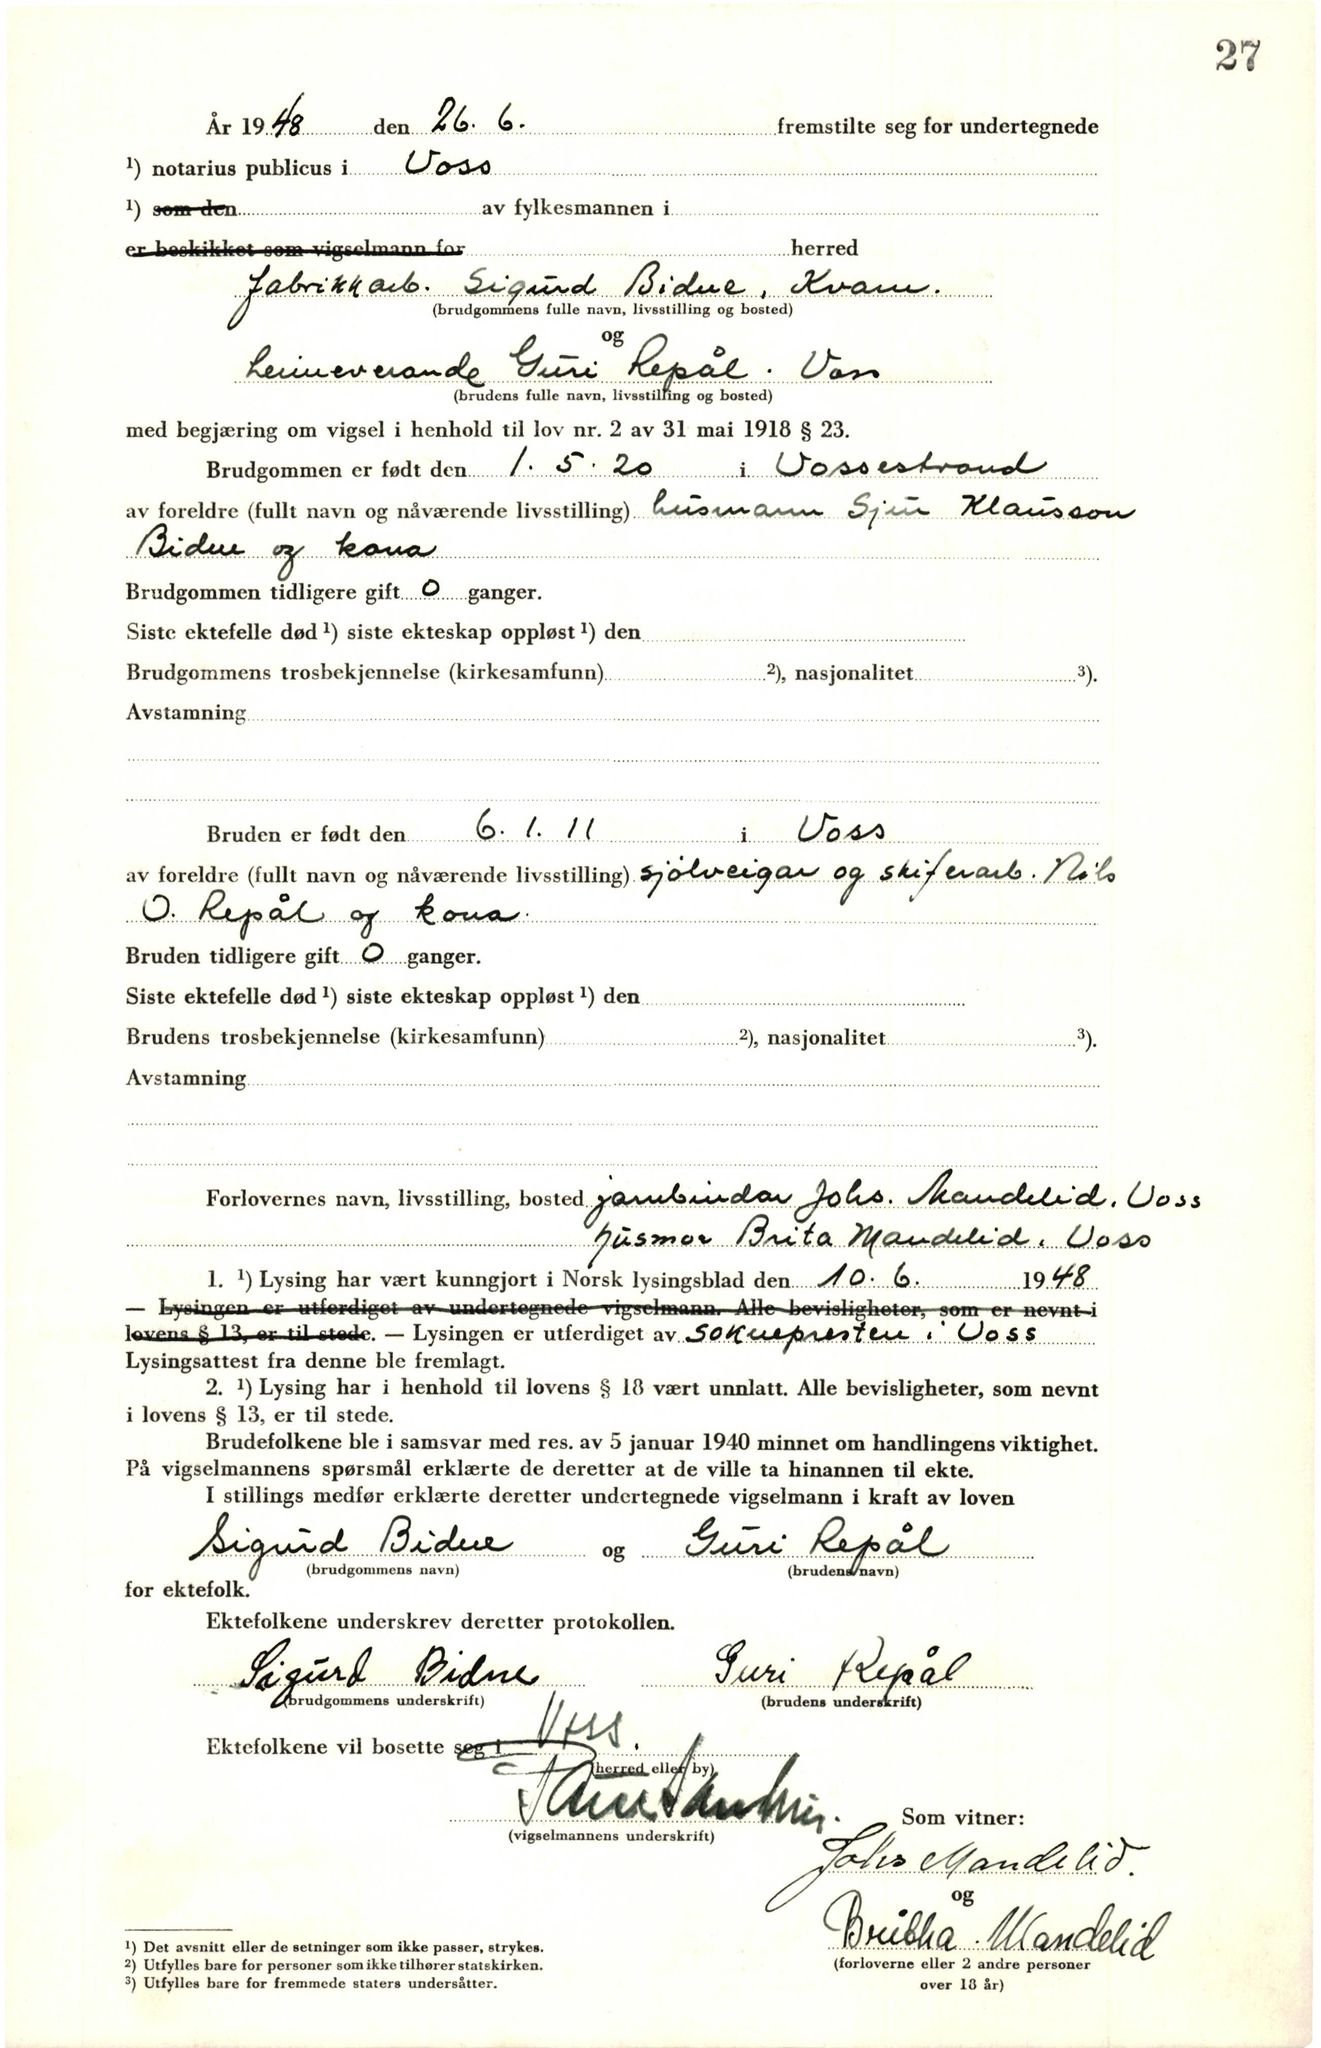 27
År 1948 den 26. 6. fremstilte seg for undertegnede
¹) notarius publicus i Voss
¹) som den av fylkesmannen i
er beskikket som vigselmann for herred
fabrikkarb. Sigurd Bidne, Kvam.
(brudgommens fulle navn, livsstilling og bosted)
og
heimeverande Guri Repål. Voss
(brudens fulle navn, livsstilling og bosted)
med begjæring om vigsel i henhold til lov nr. 2 av 31 mai 1918 § 23.
Brudgommen er født den 1. 5. 20 i Vossestrand
av foreldre (fullt navn og nåværende livsstilling) husmann Sjur Klausson
Bidne og kona
Brudgommen tidligere gift 0 ganger.
Siste ektefelle død ¹) siste ekteskap oppløst ¹) den
Brudgommens trosbekjennelse (kirkesamfunn) ²), nasjonalitet ³).
Avstamning
Bruden er født den 6. 1. 11 i Voss
av foreldre (fullt navn og nåværende livsstilling) sjølveigar og skiferarb. Nils
O. Repål og kona.
Bruden tidligere gift 0 ganger.
Siste ektefelle død ¹) siste ekteskap oppløst ¹) den
Brudens trosbekjennelse (kirkesamfunn) ²), nasjonalitet ³).
Avstamning
Forlovernes navn, livsstilling, bosted jarnbindar Johs. Mandelid, Voss
husmor Brita Mandelid, Voss
1. ¹) Lysing har vært kunngjort i Norsk lysingsblad den 10. 6. 1948
— Lysingen er utferdiget av undertegnede vigselmann. Alle bevisligheter, som er nevnt i
lovens § 13, er til stede. — Lysingen er utferdiget av soknepresten i Voss
Lysingsattest fra denne ble fremlagt.
2. ¹) Lysing har i henhold til lovens § 18 vært unnlatt. Alle bevisligheter, som nevnt
i lovens § 13, er til stede.
Brudefolkene ble i samsvar med res. av 5 januar 1940 minnet om handlingens viktighet.
På vigselmannens spørsmål erklærte de deretter at de ville ta hinannen til ekte.
I stillings medfør erklærte deretter undertegnede vigselmann i kraft av loven
Sigurd Bidne og Guri Repål
(brudgommens navn) (brudens navn)
for ektefolk.
Ektefolkene underskrev deretter protokollen.
Sigurd Bidne Guri Repål
(brudgommens underskrift) (brudens underskrift)
Ektefolkene vil bosette seg i Voss.
(herred eller by)
Som vitner:
(vigselmannens underskrift)
Johs Mandelid.
og
Britha Mandelid
(forloverne eller 2 andre personer
over 18 år)
¹) Det avsnitt eller de setninger som ikke passer, strykes.
²) Utfylles bare for personer som ikke tilhører statskirken.
³) Utfylles bare for fremmede staters undersåtter.